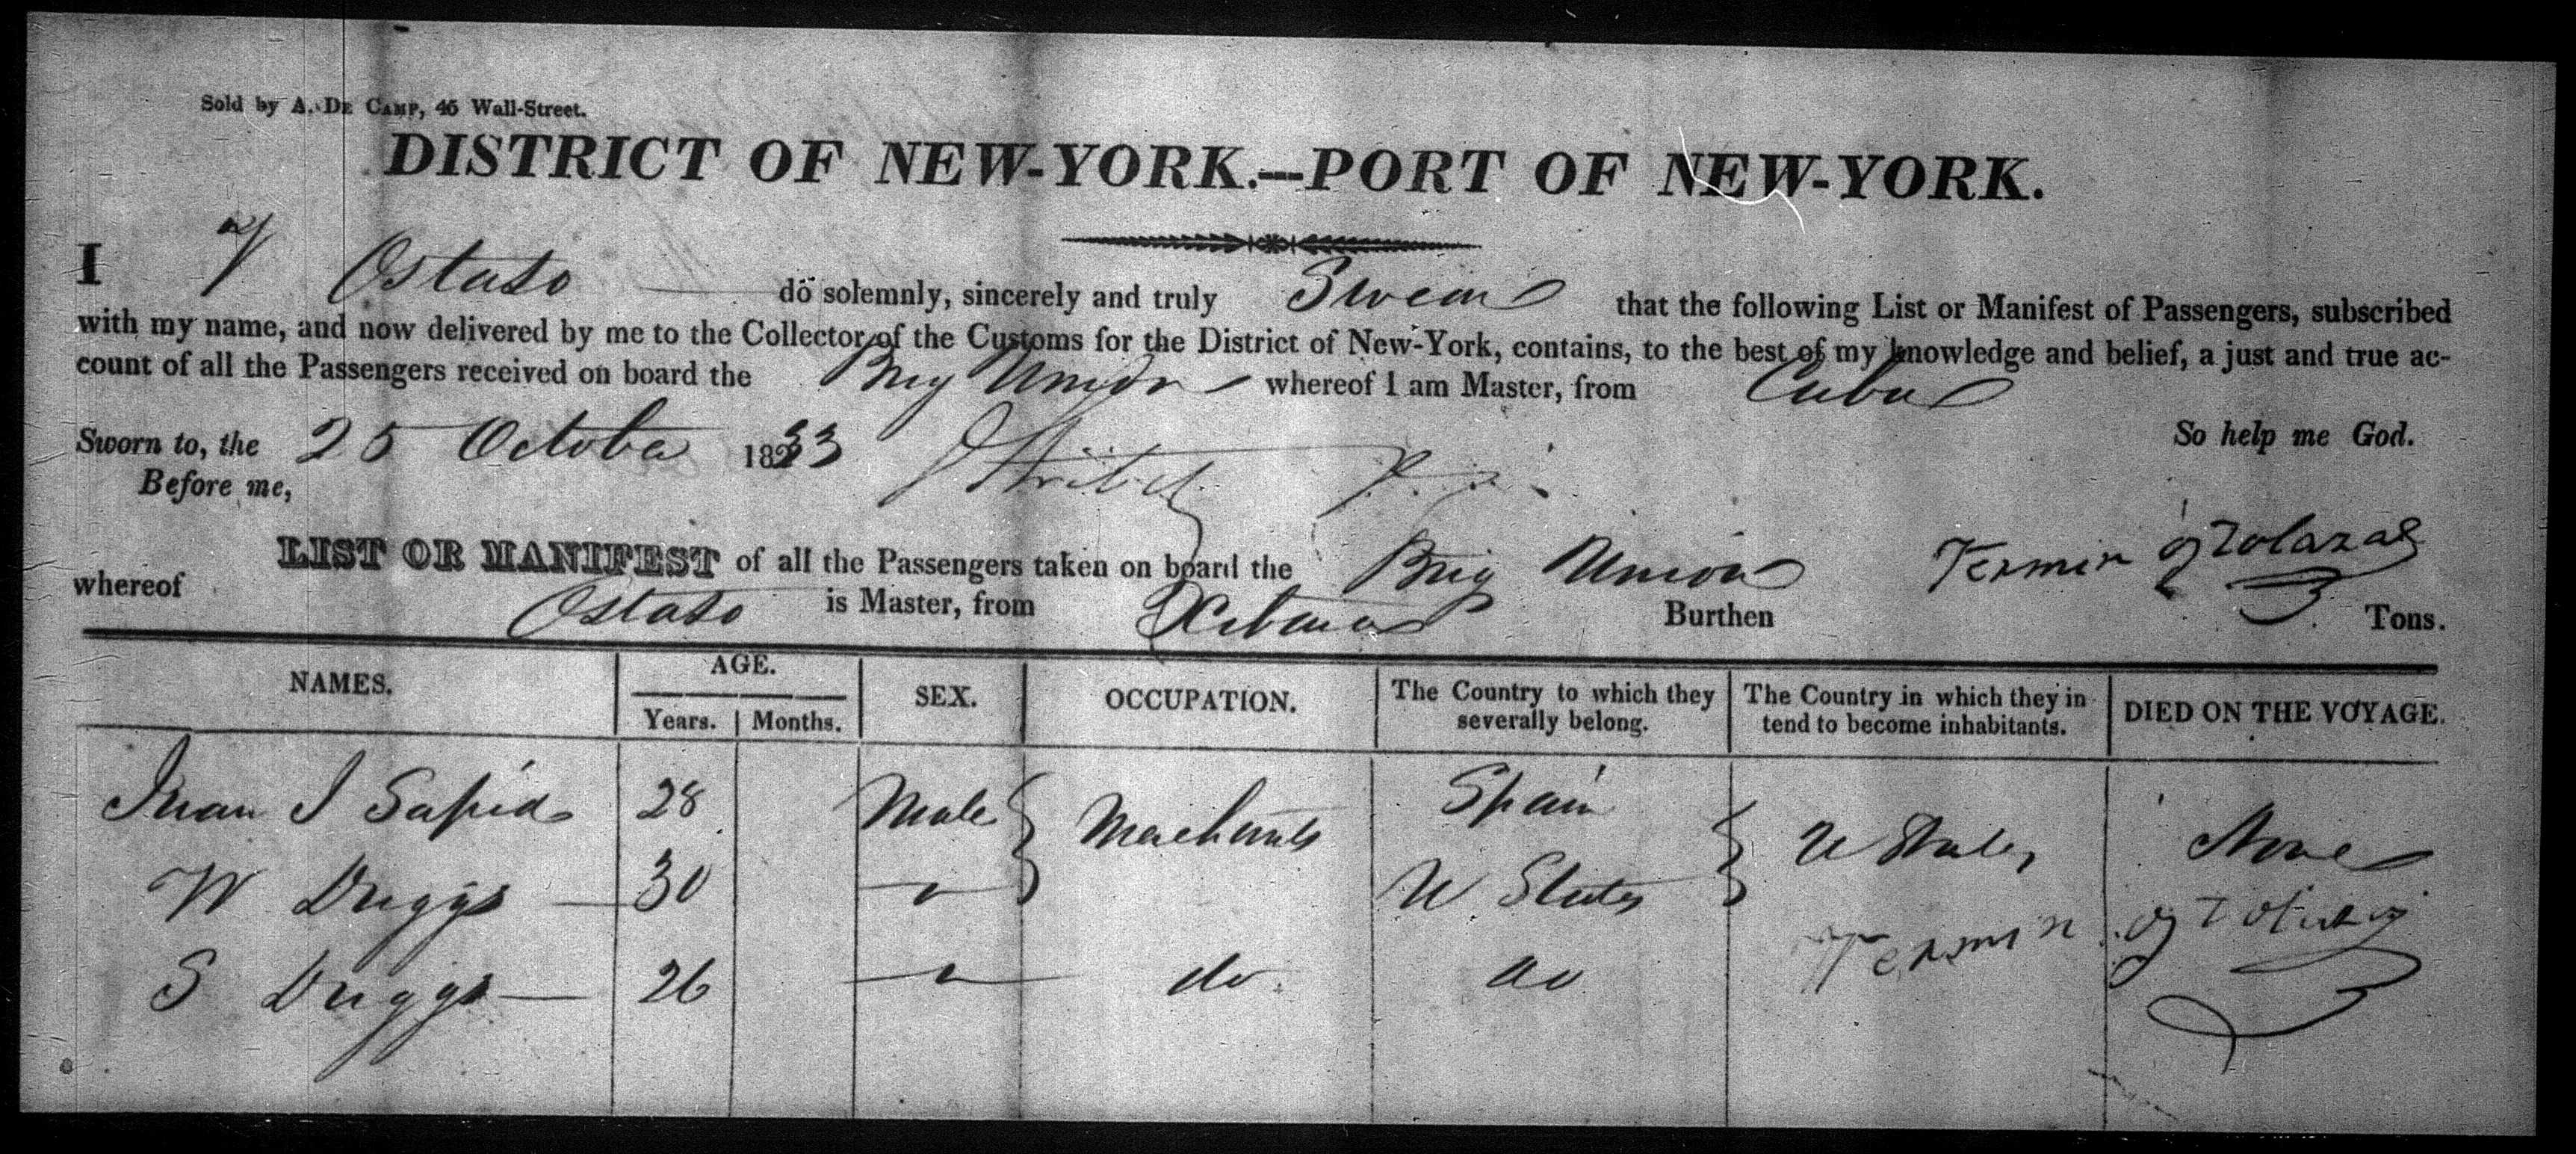 Sold by A. DE CAMP, 46 Wall-Street.
DISTRICT OF NEW-YORK.—PORT OF NEW-YORK.
I Ostaso do solemnly, sincerely and truly Swear that the following List or Manifest of Passengers, subscribed
with my name, and now delivered by me to the Collector of the Customs for the District of New-York, contains, to the best of my knowledge and belief, a just and true ac-
count of all the Passengers received on board the Brig Union whereof I am Master, from Cuba
Sworn to, the 25 October 1833 So help me God.
Before me,
LIST OR MANIFEST of all the Passengers taken on board the Brig Union Fermin
whereof Ostaso is Master, from Burthen Tons.
NAMES. AGE. SEX. OCCUPATION. The Country to which they severally belong. The Country in which they in tend to become inhabitants. DIED ON THE VOYAGE.
Years. Months.
Juan J 28 Male Merchants Spain U States None
W Driggs 30 " U States
S Driggs 26 " do do Fermin